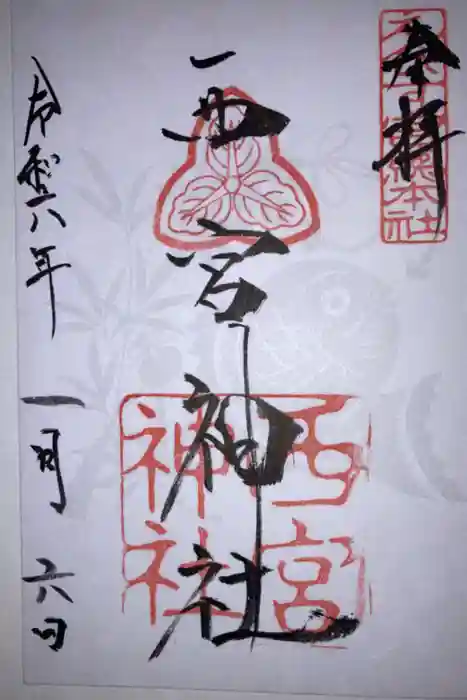 奉拝
宮総本社
西宮神社
西宮
神社
令和六年 一月 六日